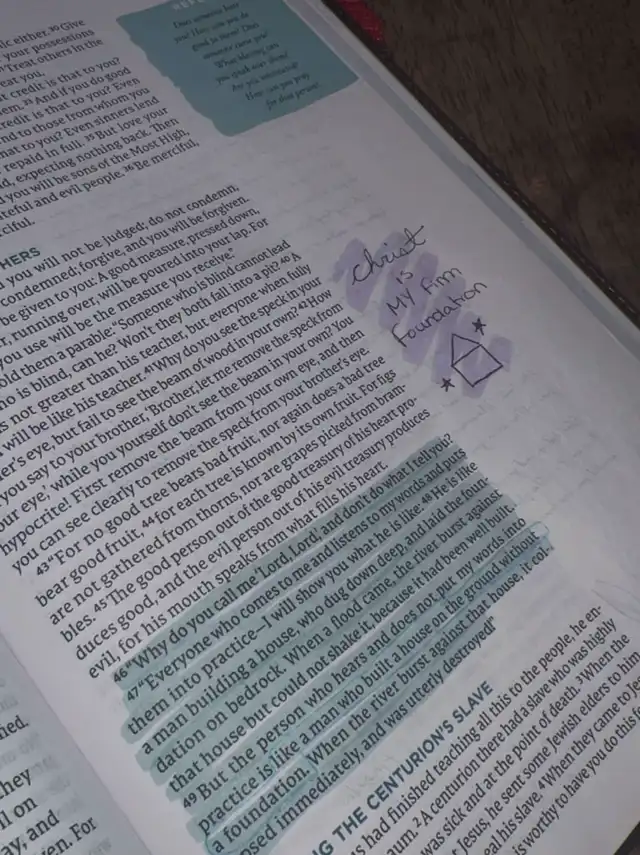 Does someone hate
you? How can you do
good to them? Does
someone curse you?
What blessing can
you speak over them?
Are you mistreated?
How can you pray
for those persons?
either. ³⁰ Give
your possessions
Treat others in the
eat you,
credit is that to you?
em. ³³ And if you do good
credit is that to you? Even
nd to those from whom you
hat to you? Even sinners lend
repaid in full. ³⁵ But love your
d, expecting nothing back. Then
d you will be sons of the Most High,
ateful and evil people. ³⁶ Be merciful,
rciful.
HERS
d you will not be judged; do not condemn,
condemned; forgive, and you will be forgiven.
be given to you: A good measure, pressed down,
r, running over, will be poured into your lap. For
you use will be the measure you receive."
old them a parable: "Someone who is blind cannot lead
ho is blind, can he? Won't they both fall into a pit? ⁴⁰ A
s not greater than his teacher, but everyone when fully
will be like his teacher. ⁴¹ "Why do you see the speck in your
er's eye, but fail to see the beam of wood in your own? ⁴² How
you say to your brother, 'Brother, let me remove the speck from
our eye,' while you yourself don't see the beam in your own? You
hypocrite! First remove the beam from your own eye, and then
you can see clearly to remove the speck from your brother's eye.
⁴³ "For no good tree bears bad fruit, nor again does a bad tree
bear good fruit, ⁴⁴ for each tree is known by its own fruit. For figs
are not gathered from thorns, nor are grapes picked from bram-
bles. ⁴⁵ The good person out of the good treasury of his heart pro-
duces good, and the evil person out of his evil treasury produces
evil, for his mouth speaks from what fills his heart.
⁴⁶ "Why do you call me 'Lord, Lord,' and don't do what I tell you?
⁴⁷ "Everyone who comes to me and listens to my words and puts
them into practice—I will show you what he is like: ⁴⁸ He is like
a man building a house, who dug down deep, and laid the foun-
dation on bedrock. When a flood came, the river burst against
that house but could not shake it, because it had been well built.
⁴⁹ But the person who hears and does not put my words into
practice is like a man who built a house on the ground without
a foundation. When the river burst against that house, it col-
psed immediately, and was utterly destroyed!"
Christ
is
MY Firm
Foundation
NG THE CENTURION'S SLAVE
us had finished teaching all this to the people, he en-
aum. ² A centurion there had a slave who was highly
was sick and at the point of death. ³ When the
t Jesus, he sent some Jewish elders to him,
eal his slave. ⁴ When they came to J
is worthy to have you do this
hed.
they
ll on
ay, and
en. For